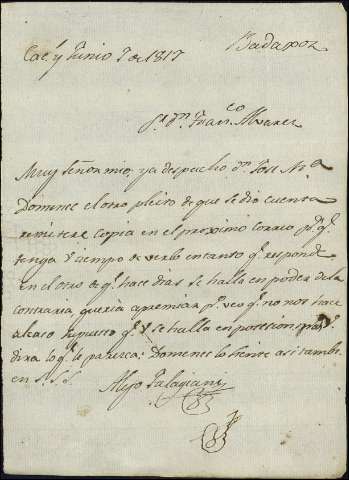 Cac.s y Junio 7 de 1817 Badajoz
S.r D.n Fran.co Alvarez
Muy Señor mio; ya despacho D.n Jose M.a
Domenec el otro pleito de que se dio cuenta
remitere copia en el proximo correo p.a q.e
tenga Y tiempo de verlo en tanto q.e responde
en el otro de q.e hace dias se halla en poder de la
contraria queria apremiar p.o veo q.e no nos hace
al caso supuesto q.e se halla en posesion
dira lo q.e le parezca; Domenec lo siente asi tambien
en S. S. S.
Alejo